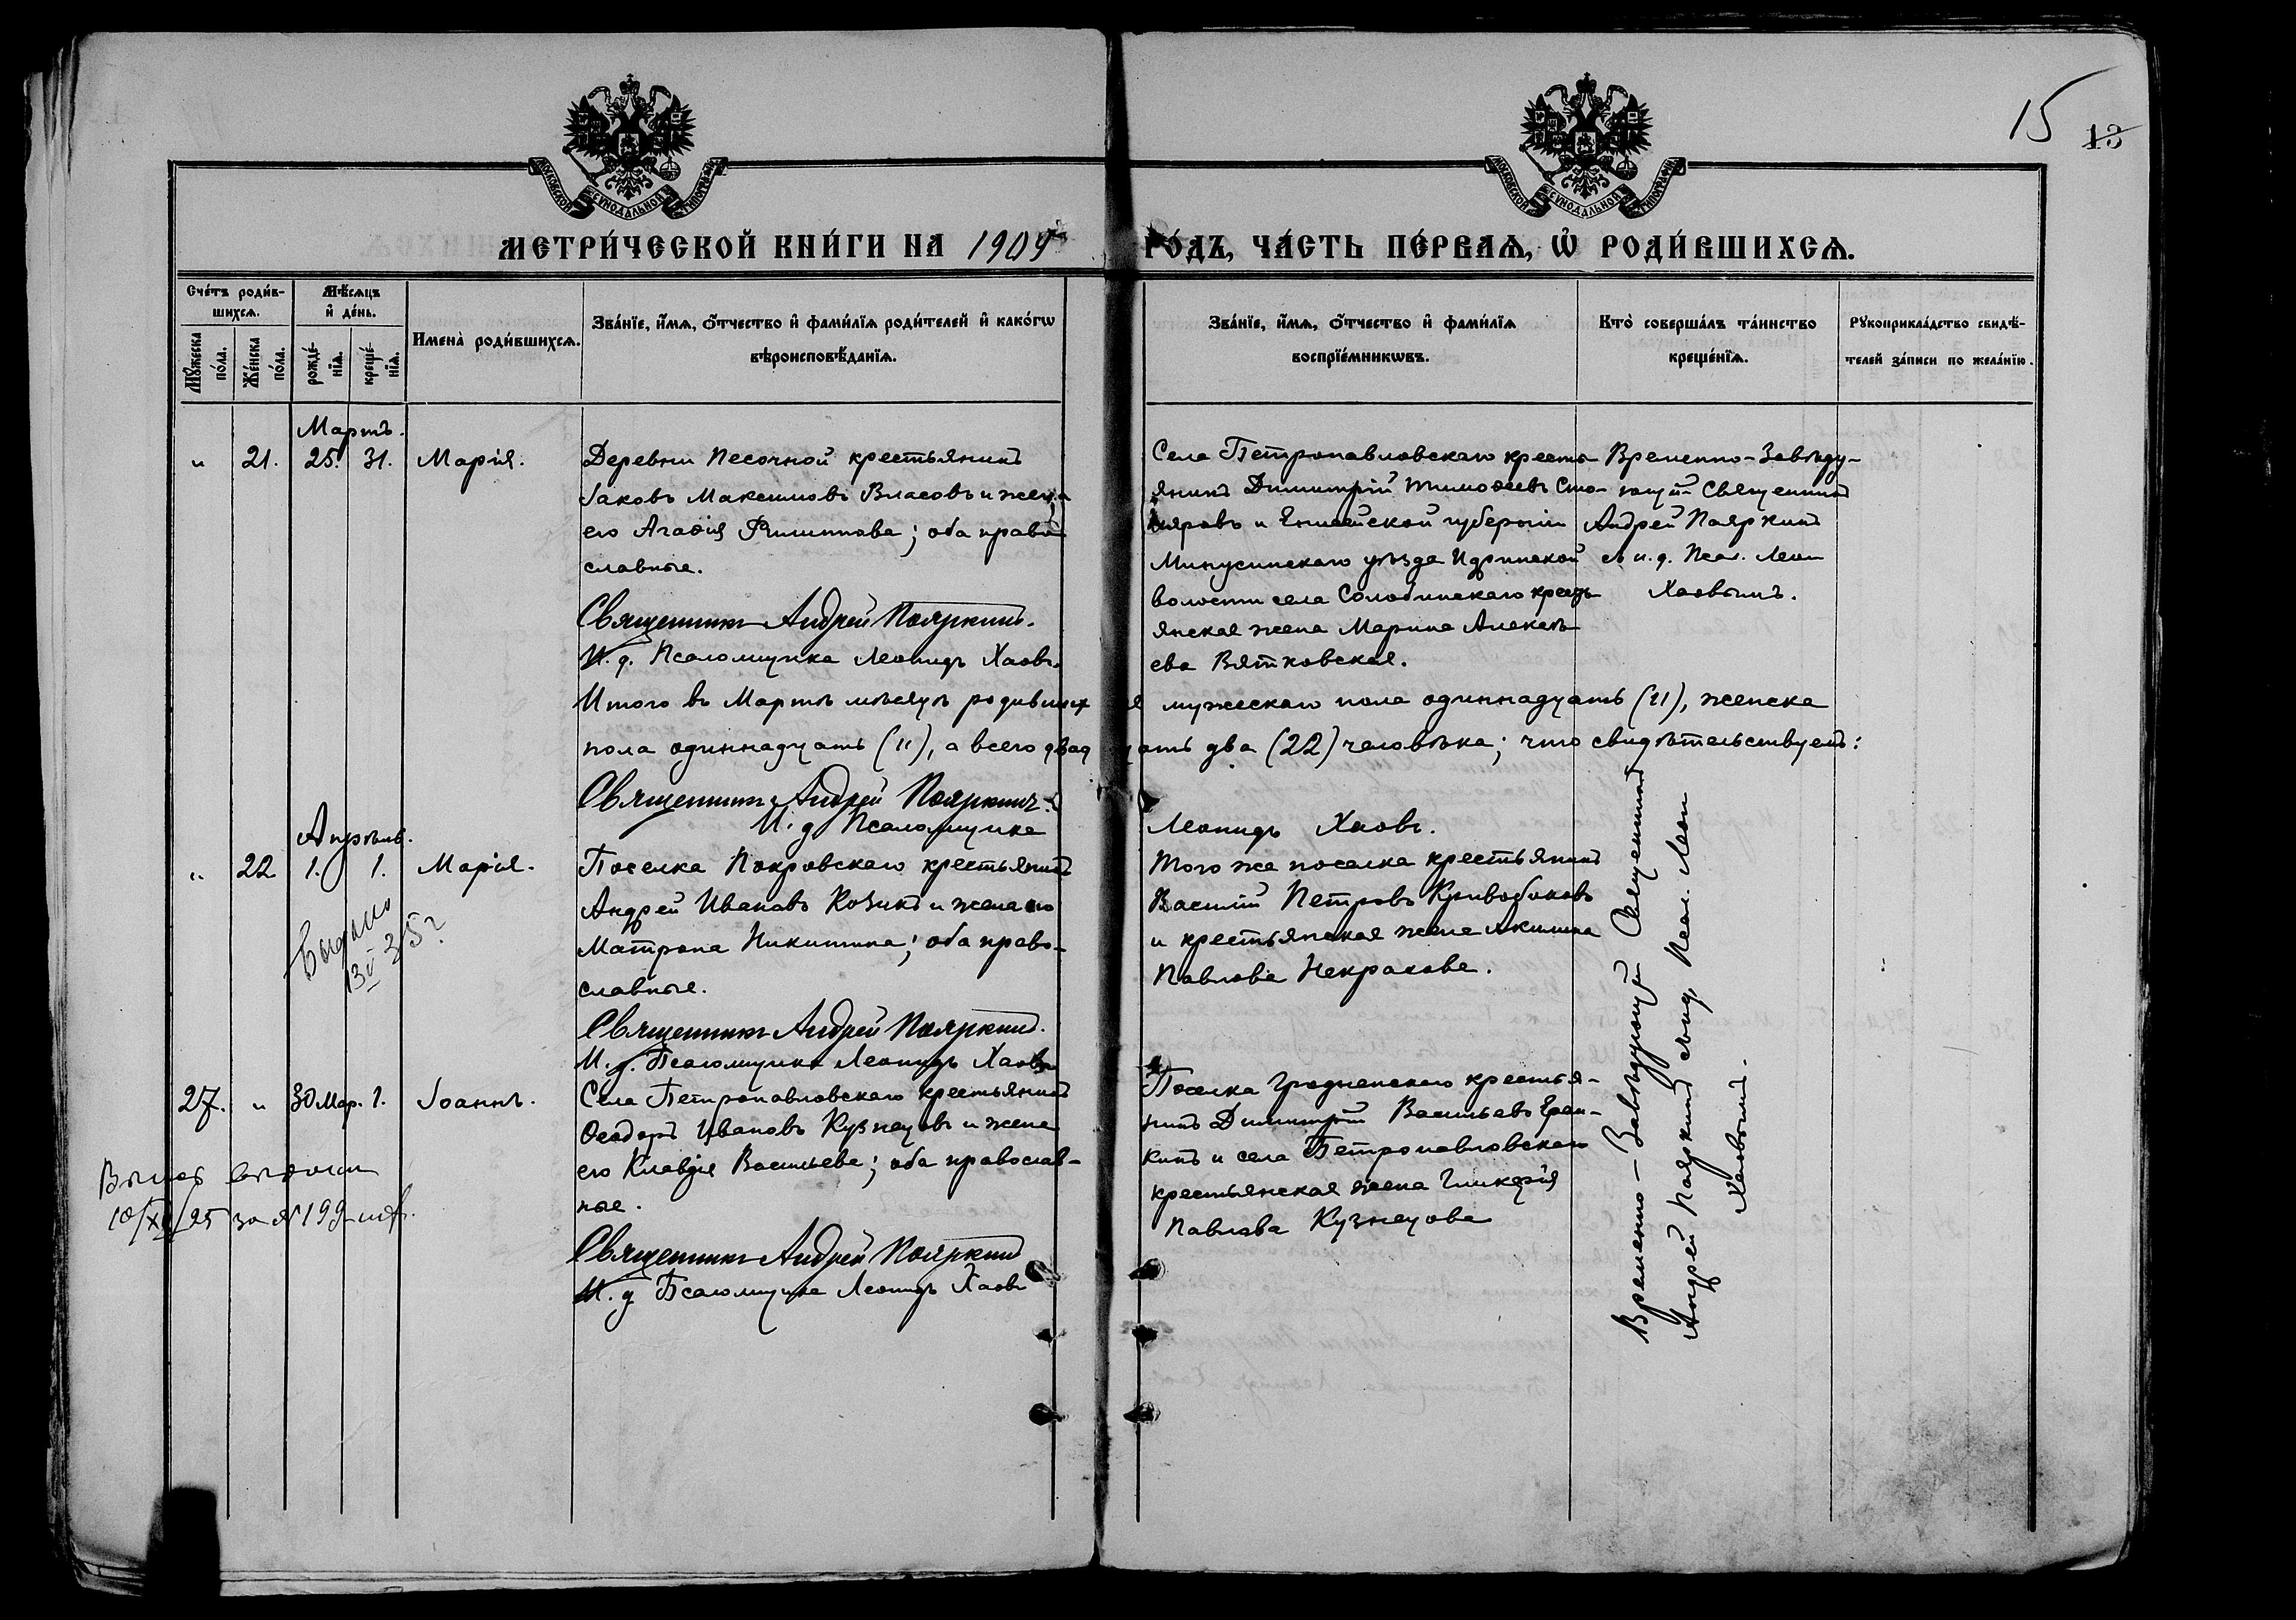 МОСКОВСКОЙ СУНОДАЛЬНОЙ ТИПОГРАФІИ
МОСКОВСКОЙ СУНОДАЛЬНОЙ ТИПОГРАФІИ
15 13
МЕТРИ́ЧЕСКОЙ КНИ́ГИ НА 1909
ГО́ДЪ, ЧА́СТЬ ПЕ́РВАѦ, Ѡ҆ РОДИ́ВШИХСѦ.
Сче́тъ роди́в-
шихсѧ.
Мѣ́сѧцъ
и҆ де́нь.
Мꙋ́жеска
по́ла.
Же́нска
по́ла.
рожде́-
нїѧ.
креще́-
нїѧ.
Имена̀ роди́вшихсѧ.
Зва́нїе, и҆́мѧ, ѻ҆́тчество и҆ фами́лїѧ роди́телей и҆ како́гѡ
вѣроисповѣ́данїѧ.
Зва́нїе, и҆́мѧ, ѻ҆́тчество и҆ фами́лїѧ
воспрїе́мникѡвъ.
Кто̀ соверша́лъ та́инство
креще́нїѧ.
Рꙋкоприкла́дство свидѣ́-
телей за́писи по жела́нїю.
Мартъ.
" 21. 25. 31. Марія.
Деревни Песочной крестьянинъ
Іаковъ Максимовъ Власовъ и жена
его Агафія Филиппова; оба право
славные.
Священникъ Андрей Пояркинъ.
И. д. Псаломщика Леонидъ Хаовъ.
Села Петропавловскаго кресть-
янинъ Димитрій Тимофеевъ Сто-
ляровъ и Енисейской губерніи
Минусинскаго уѣзда Идринской
волости села Солобинскаго кресть
янская жена Марина Алексѣ-
ева Вятковская.
Временно-Завѣду-
ющій Священникъ
Андрей Пояркинъ
съ и. д. Псал. Леон
Хаовымъ.
Итого въ Мартѣ мѣсяцѣ родившихся мужескаго пола одиннадцать (11), женска
пола одиннадцать (11), а всего двадцать два (22) человѣка; что свидѣтельствуемъ:
Священникъ Андрей Пояркинъ.
И. д Псаломщика Леонидъ Хаовъ.
Апрѣль.
" 22 1. 1. Марія.
Выдано
13 V 35 г
Поселка Покровскаго крестьянинъ
Андрей Ивановъ Козикъ и жена его
Матрона Никитина; оба право-
славные.
Священникъ Андрей Пояркинъ.
И. д. Псаломщика Леонидъ Хаовъ
Того же поселка крестьянинъ
Василій Петровъ Кривобоковъ
и крестьянская жена Акилина
Павлова Некрасова.
Временно-Завѣдующій Священникъ
Андрей Пояркинъ съ и.д. Псал. Леон
Хаовымъ.
27. " 30 Мар. 1. Іоаннъ.
10/XII 25 за № 199
Села Петропавловскаго крестьянинъ
Феодоръ Ивановъ Кузнецовъ и жена
его Клавдія Васильева; оба православ-
ные.
Священникъ Андрей Пояркинъ
И. д Псаломщика Леонидъ Хаовъ
Поселка Гродненскаго крестья-
нинъ Димитрій Васильевъ Еран-
кинъ и села Петропавловскаго
крестьянская жена Гликерія
Павлова Кузнецова